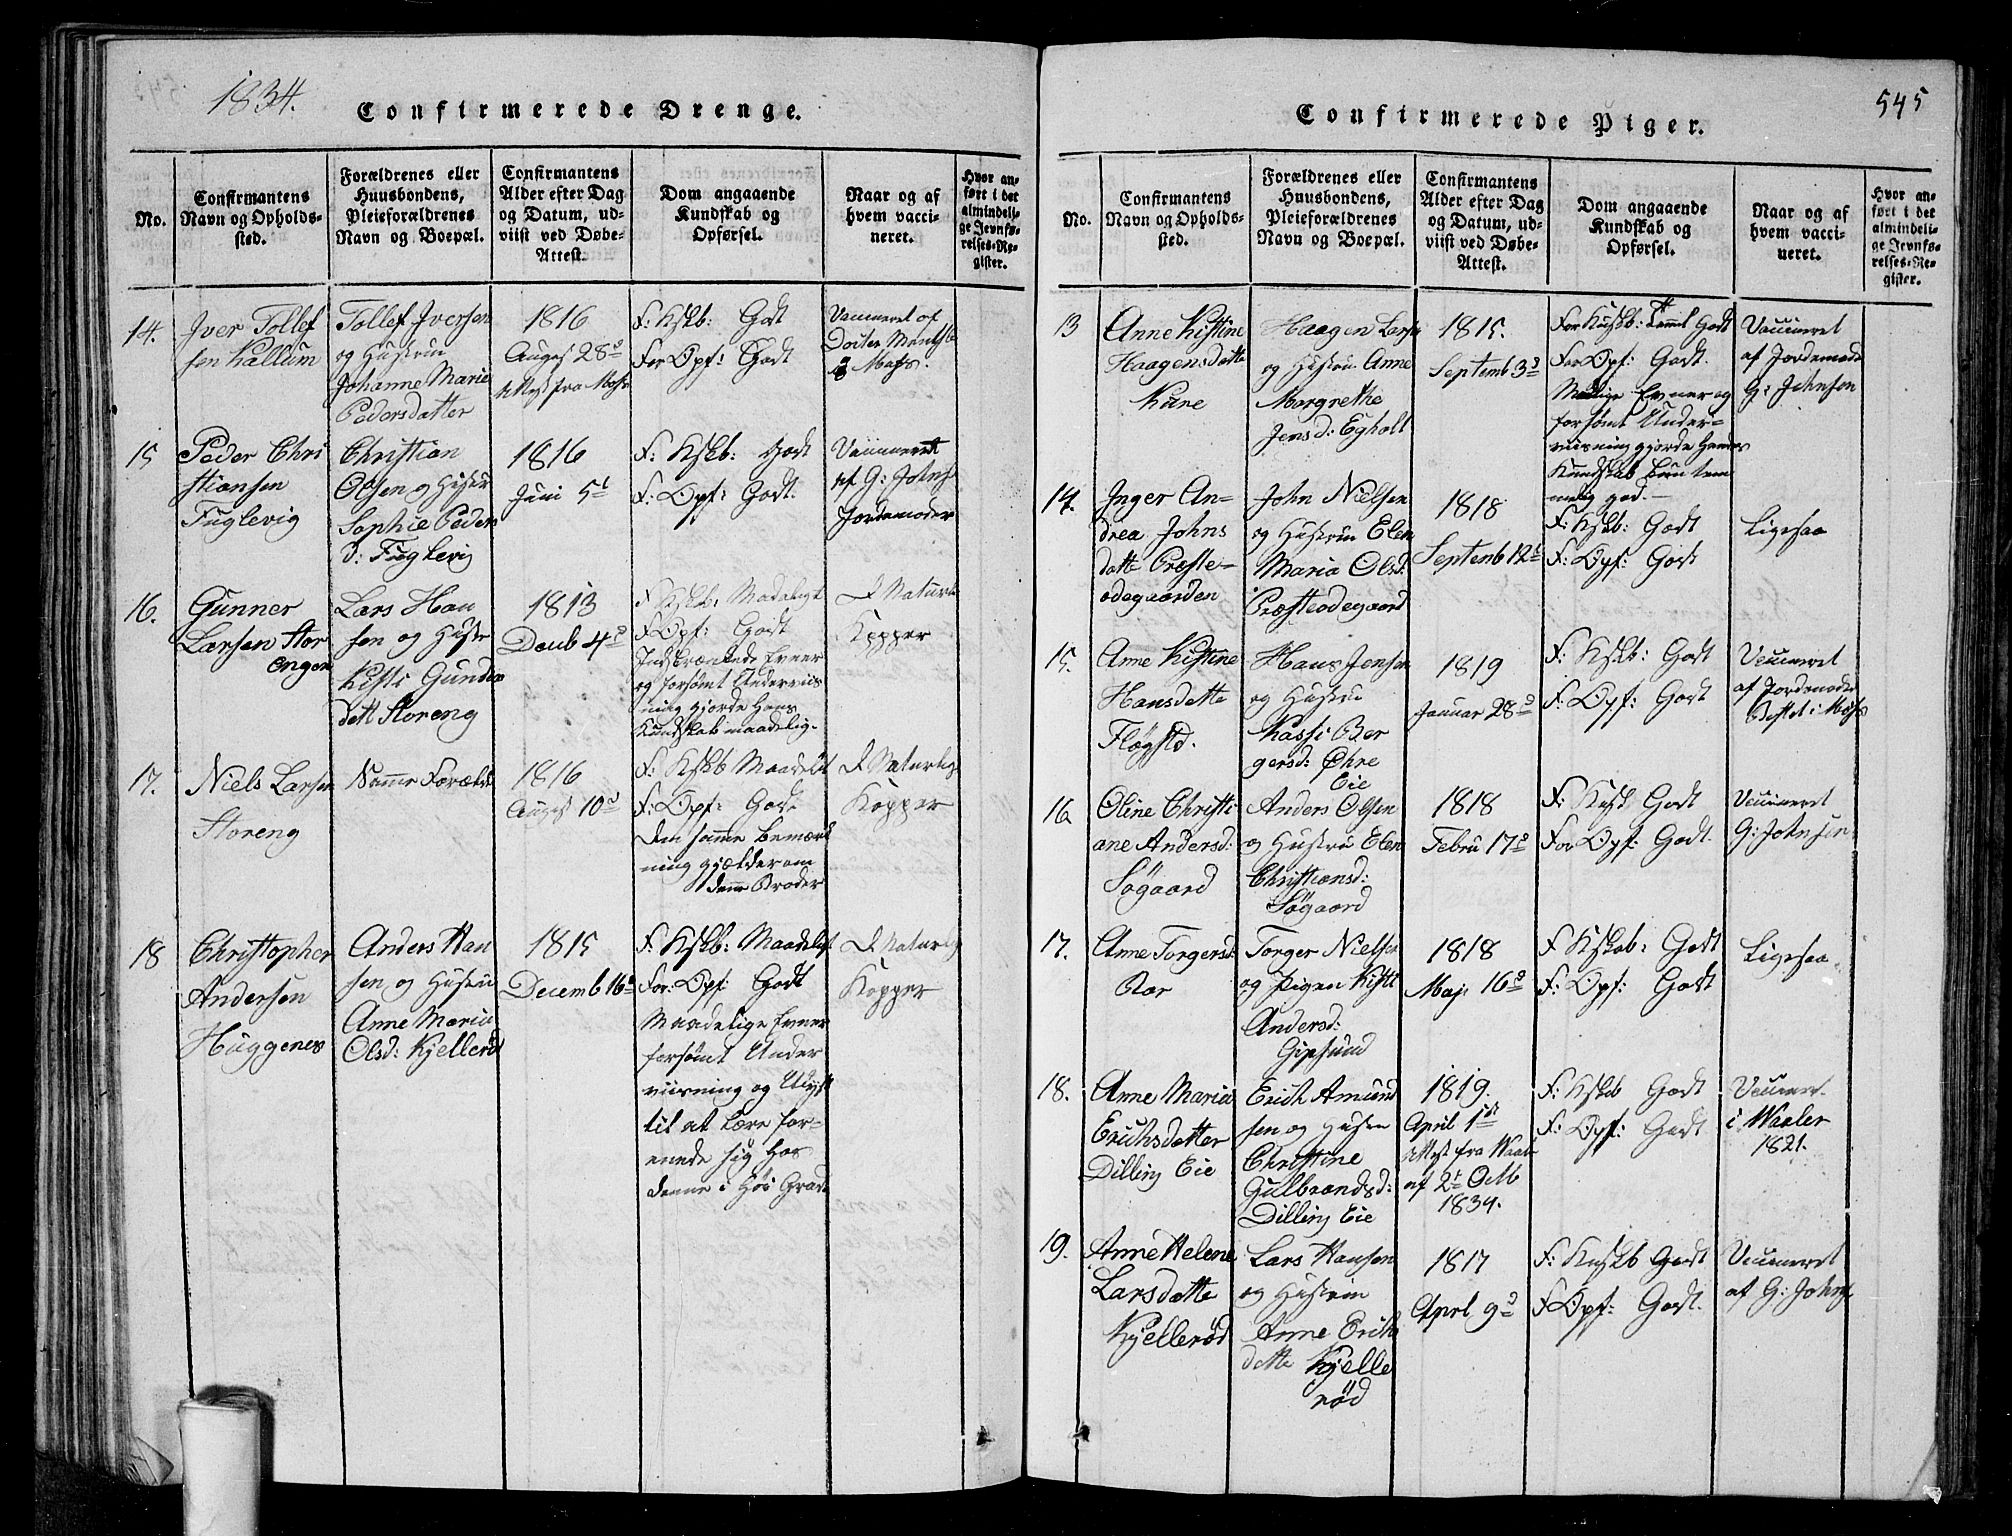 1834.
Confirmerede Drenge.
No.
Confirmantens
Navn og Opholds-
sted.
Forældrenes eller
Huusbondens,
Pleieforældrenes
Navn og Boepæl.
Confirmantens
Alder efter Dag
og Datum, ud-
viist ved Døbe-
Attest.
Dom angaaende
Kundskab og
Opførsel.
Naar og af
hvem vacci-
neret.
Hvor an-
ført i det
almindeli-
ge Jevnfø-
relses-Re-
gister.
14.
Iver Tollef
sen Kallum
Tollef Iversen
og Hustrue
Johanne Marie
Pedersdatter
1816
August 28de
Attest fra Moss
F: Kskb: Godt
For Opf: Godt
Vaccineret af
i Moss.
15
Peder Chri
stiansen
Fuglevig
Christian
Olsen og Hustr
Sophie Peders
d: Fuglevig
1816
Juni 5t
F: Kskb: Godt
F: Opf: Godt.
Vaccineret
af G: Johns
Jordemoder
16.
Gunner
Larsen Stor
engen
Lars Han
sen og Hustr
Kisti Gunders
datt Storeng
1813
Decb 4d
F Kskb: Madeligt
F Opf: Godt
Indskrænkede Evner
og forsømt Underviis
ning gjorde Hans
Kundskab maadelig.
D Naturl
Kopper
17.
Niels Larsen
Storeng
Samme Forældre
1816
August 10d
F: Kskb Maadeligt
F: Opf: Godt
Den samme bemærk
ning gjælder om
denne Broder
D Naturlig
Kopper
18
Christopher
Andersen
Huggenes
Anders Han
sen og Hustru
Anne Maria
Olsd: Kjellerød
1815
Decemb 16d
F: Kskb: Maadeligt
For: Opf: Godt
Maadelige Evner
forsømt Under
viisning og Ulyst
til at lære for-
enede sig hos
denne i Høi Grad
D Naturlig
Kopper
545
Confirmerede Piger.
No.
Confirmantens
Navn og Opholds-
sted.
Forældrenes eller
Huusbondens,
Pleieforældrenes
Navn og Boepæl.
Confirmantens
Alder efter Dag
og Datum, ud-
viist ved Døbe-
Attest.
Dom angaaende
Kundskab og
Opførsel.
Naar og af
hvem vacci-
neret.
Hvor an-
ført i det
almindeli-
ge Jevnfø-
relses-Re-
gister.
13
Anne Kistine
Haagensdatte
Kure
Haagen Lars
og Hustru Anne
Margrethe
Jensd: Egholt
1815.
Septemb 3d
For Kuskb: Temml Godt
For Opf: Godt.
Madlige Evner og
forsømt Under-
viisning gjorde Hendes
Kundskab kun tem
melig god.—
Vaccineret
af Jordemode
G: Johnsen
14.
Inger An-
drea Johns
datte Præste-
ødegaarden
John Nielsen
og Hustrue Elen
Maria Olsd:
Præsteødegaard
1818
Septemb 12t
F: Kskb: Godt
F: Opf: Godt
Ligesaa
15.
Anne Kistine
Hansdatte
Hans Jensen
og Hustru
Kassi Ber
gersd: Øhre
Eie
1819
Januar 28d
F: Kskb: Godt
F: Opf: Godt
Vaccineret
af Jordemoder
i Moss
16
Oline Christi
ane Andersd:
Søgaard
Anders Olsen
og Hustru Elen
Christiansd:
Søgaard
1818
Febru 17d
F: Kskb Godt
For Opf: Godt.
Vaccineret
G: Johnsen
17.
Anne Torgersd:
Rør
Torger Nielsen
og Pigen Kisti
Andersd:
Gipsund
1818
Maji 16d
F Kskab: Godt
F: Opf: Godt
Ligesaa
18.
Anne Maria
Erichsdatter
Dilling Eie
Erich Amund
sen og Hustru
Christine
Gulbrandsd:
Dilling Eie
1819.
April 1ste
Attest fra Waal
af 2t Octb
1834.
F: Kskb Godt
F: Opf: Godt
Vaccineret
i Waaler
1821.
19.
Anne Helene
Larsdatte
Kjellerød
Lars Hansen
og Hustrue
Anne Erichs
datte Kjelle
rød
1817
April 9d
F: Kuskb Godt
F Opf: Godt.
Vaccineret
af G: Johns